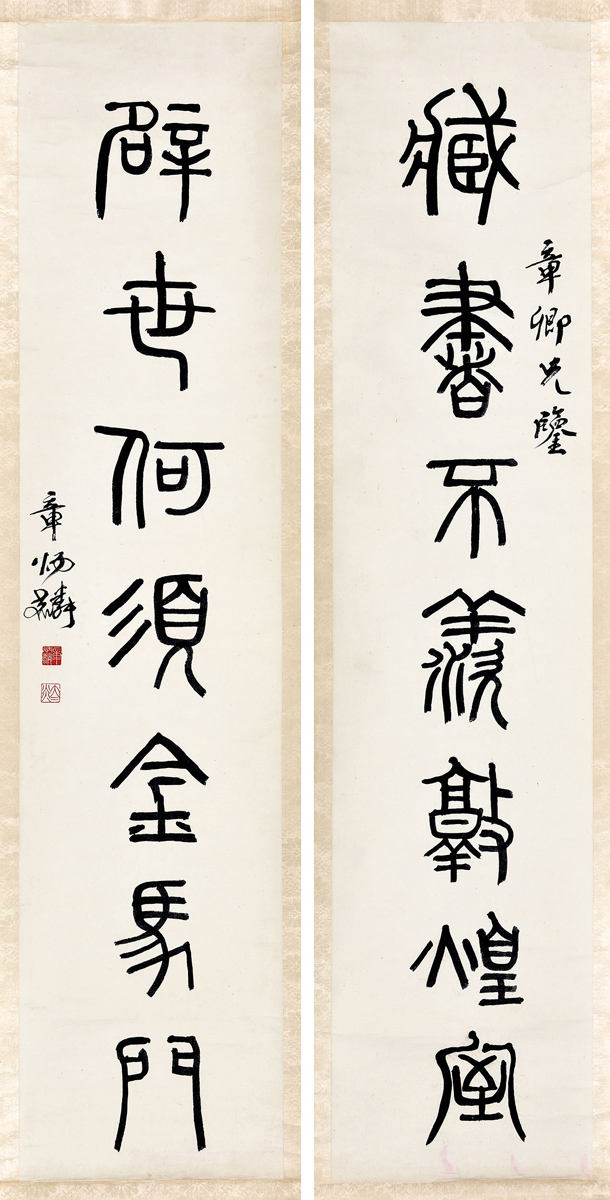 章卿兄鑒
藏書不羨敦煌室
辟世何須金馬門
章炳麟
太炎